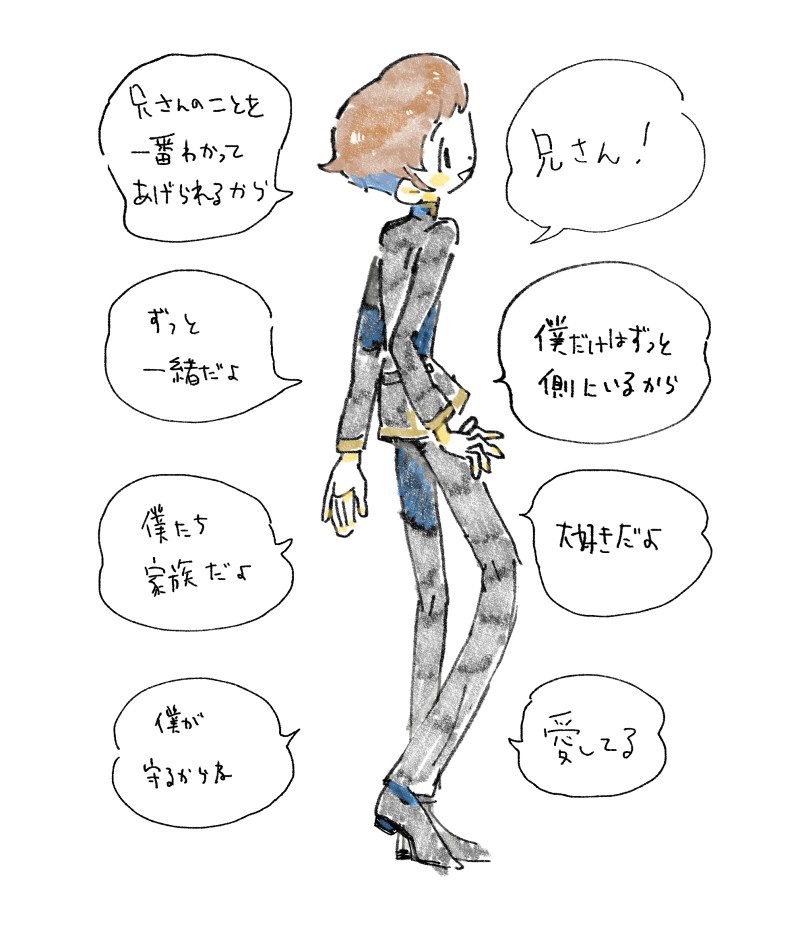 兄さん！
僕だけはずっと
側にいるから
大好きだよ
愛してる
兄さんのことを
一番わかって
あげられるから
ずっと
一緒だよ
僕たち
家族だよ
僕が
守るからね